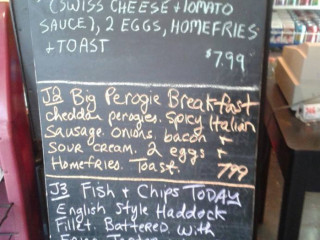 (SWISS CHEESE + TOMATO
SAUCE), 2 EGGS, HOMEFRIES
+ TOAST
$7.99
J2 Big Perogie Breakfast
cheddar perogies. Spicy Italian
Sausage. onions. bacon +
sour cream. 2 eggs +
Homefries. Toast. 799
J3 Fish + Chips TODAY
English Style Haddock
Fillet. BATTERED. With